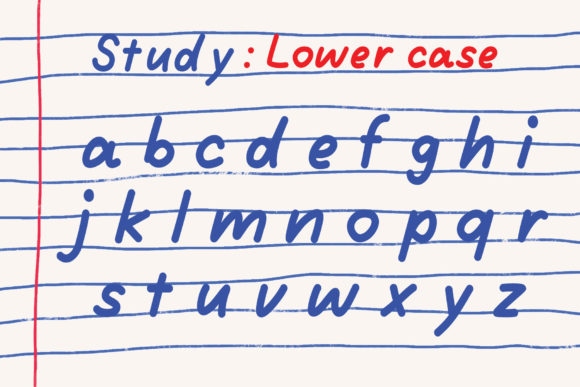 Study: Lower case
a b c d e f g h i
j k l m n o p q r
s t u v w x y z